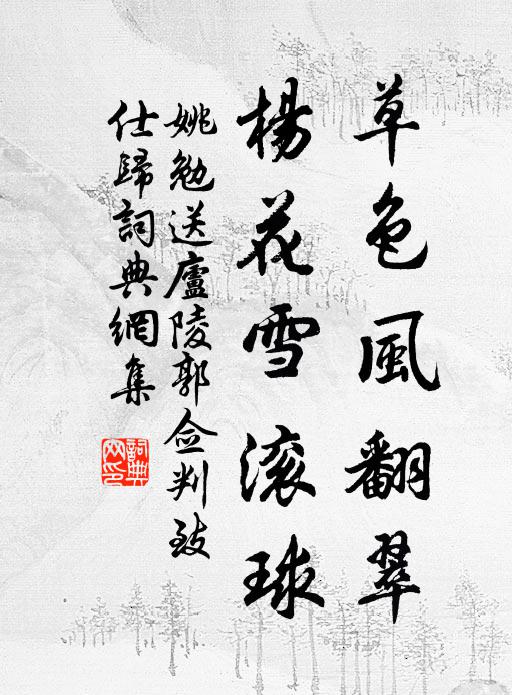 草色風翻翠
楊花雪滚球
姚勉送廬陵郭僉判致
仕歸詞典網集
詞典网印